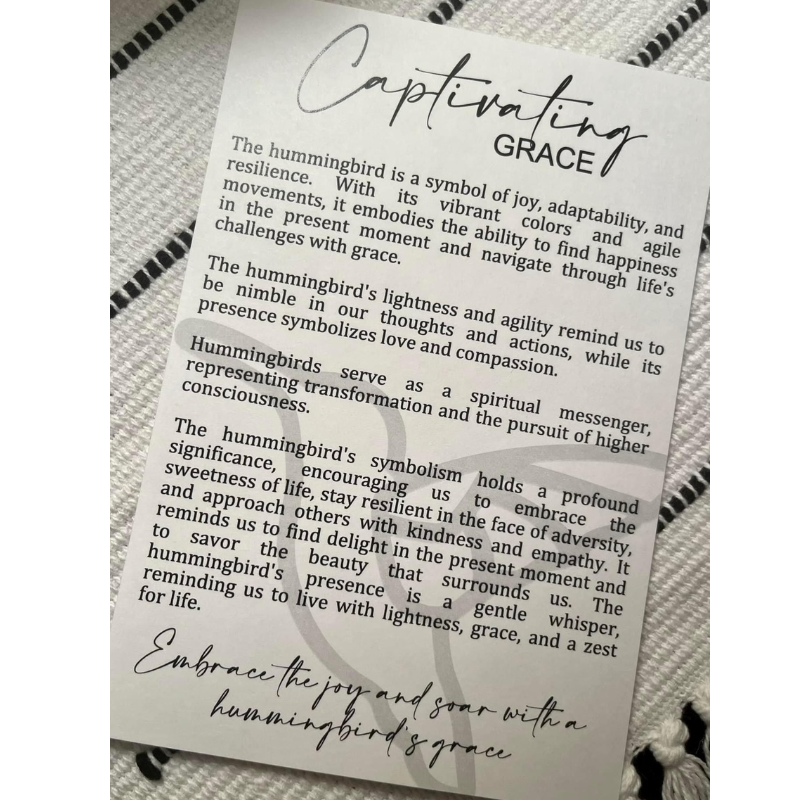 Captivating
GRACE
The hummingbird is a symbol of joy, adaptability, and
resilience. With its vibrant colors and agile
movements, it embodies the ability to find happiness
in the present moment and navigate through life's
challenges with grace.
The hummingbird's lightness and agility remind us to
be nimble in our thoughts and actions, while its
presence symbolizes love and compassion.
Hummingbirds serve as a spiritual messenger,
representing transformation and the pursuit of higher
consciousness.
The hummingbird's symbolism holds a profound
significance, encouraging us to embrace the
sweetness of life, stay resilient in the face of adversity,
and approach others with kindness and empathy. It
reminds us to find delight in the present moment and
to savor the beauty that surrounds us. The
hummingbird's presence is a gentle whisper,
reminding us to live with lightness, grace, and a zest
for life.
Embrace the joy and soar with a
hummingbird's grace